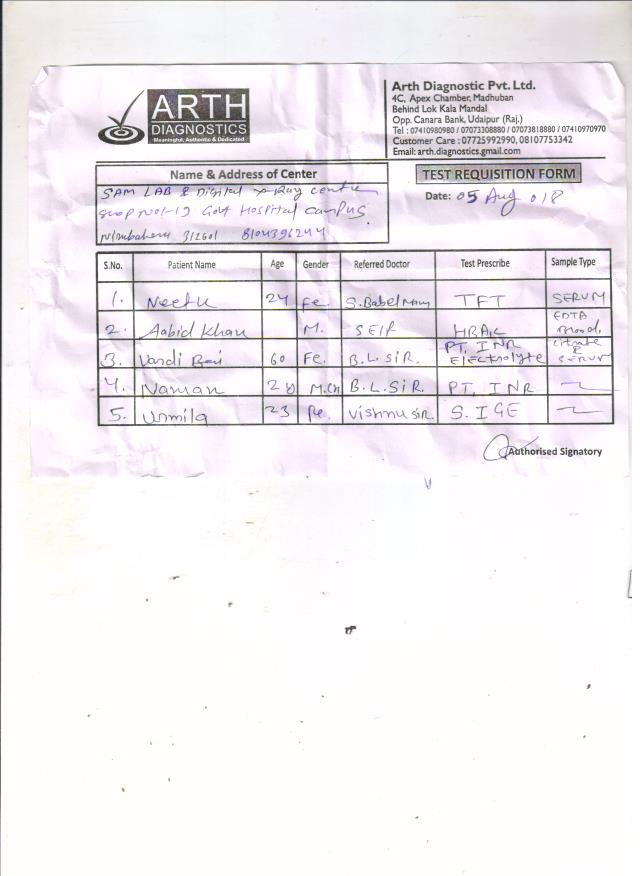 ARTH
DIAGNOSTICS
Meaningful, Authentic & Dedicated
Arth Diagnostic Pvt. Ltd.
4C, Apex Chamber, Madhuban
Behind Lok Kala Mandal
Opp. Canara Bank, Udaipur (Raj.)
Tel : 07410980980 / 07073308880 / 07073818880 / 07410970970
Customer Care : 07725992990, 08107753342
Email: arth.diagnostics.gmail.com
Name & Address of Center
SAM LAB & Digital X-Ray centre
Govt Hospital campus
312601
TEST REQUISITION FORM
Date: 05 Aug 018
S.No. Patient Name Age Gender Referred Doctor Test Prescribe Sample Type
1. Neetu 24 Fe. S. Babel TFT SERUM
2. Aabid Khan M. SELF EDTA Blood.
3. Bai 60 Fe. B.L. SIR. PT, INR Electrolyte citrate & SERUM
4. Naman B.L. SIR. PT, INR
5. Urmila 23 Fe. Vishnu SIR. S. IGE
Authorised Signatory